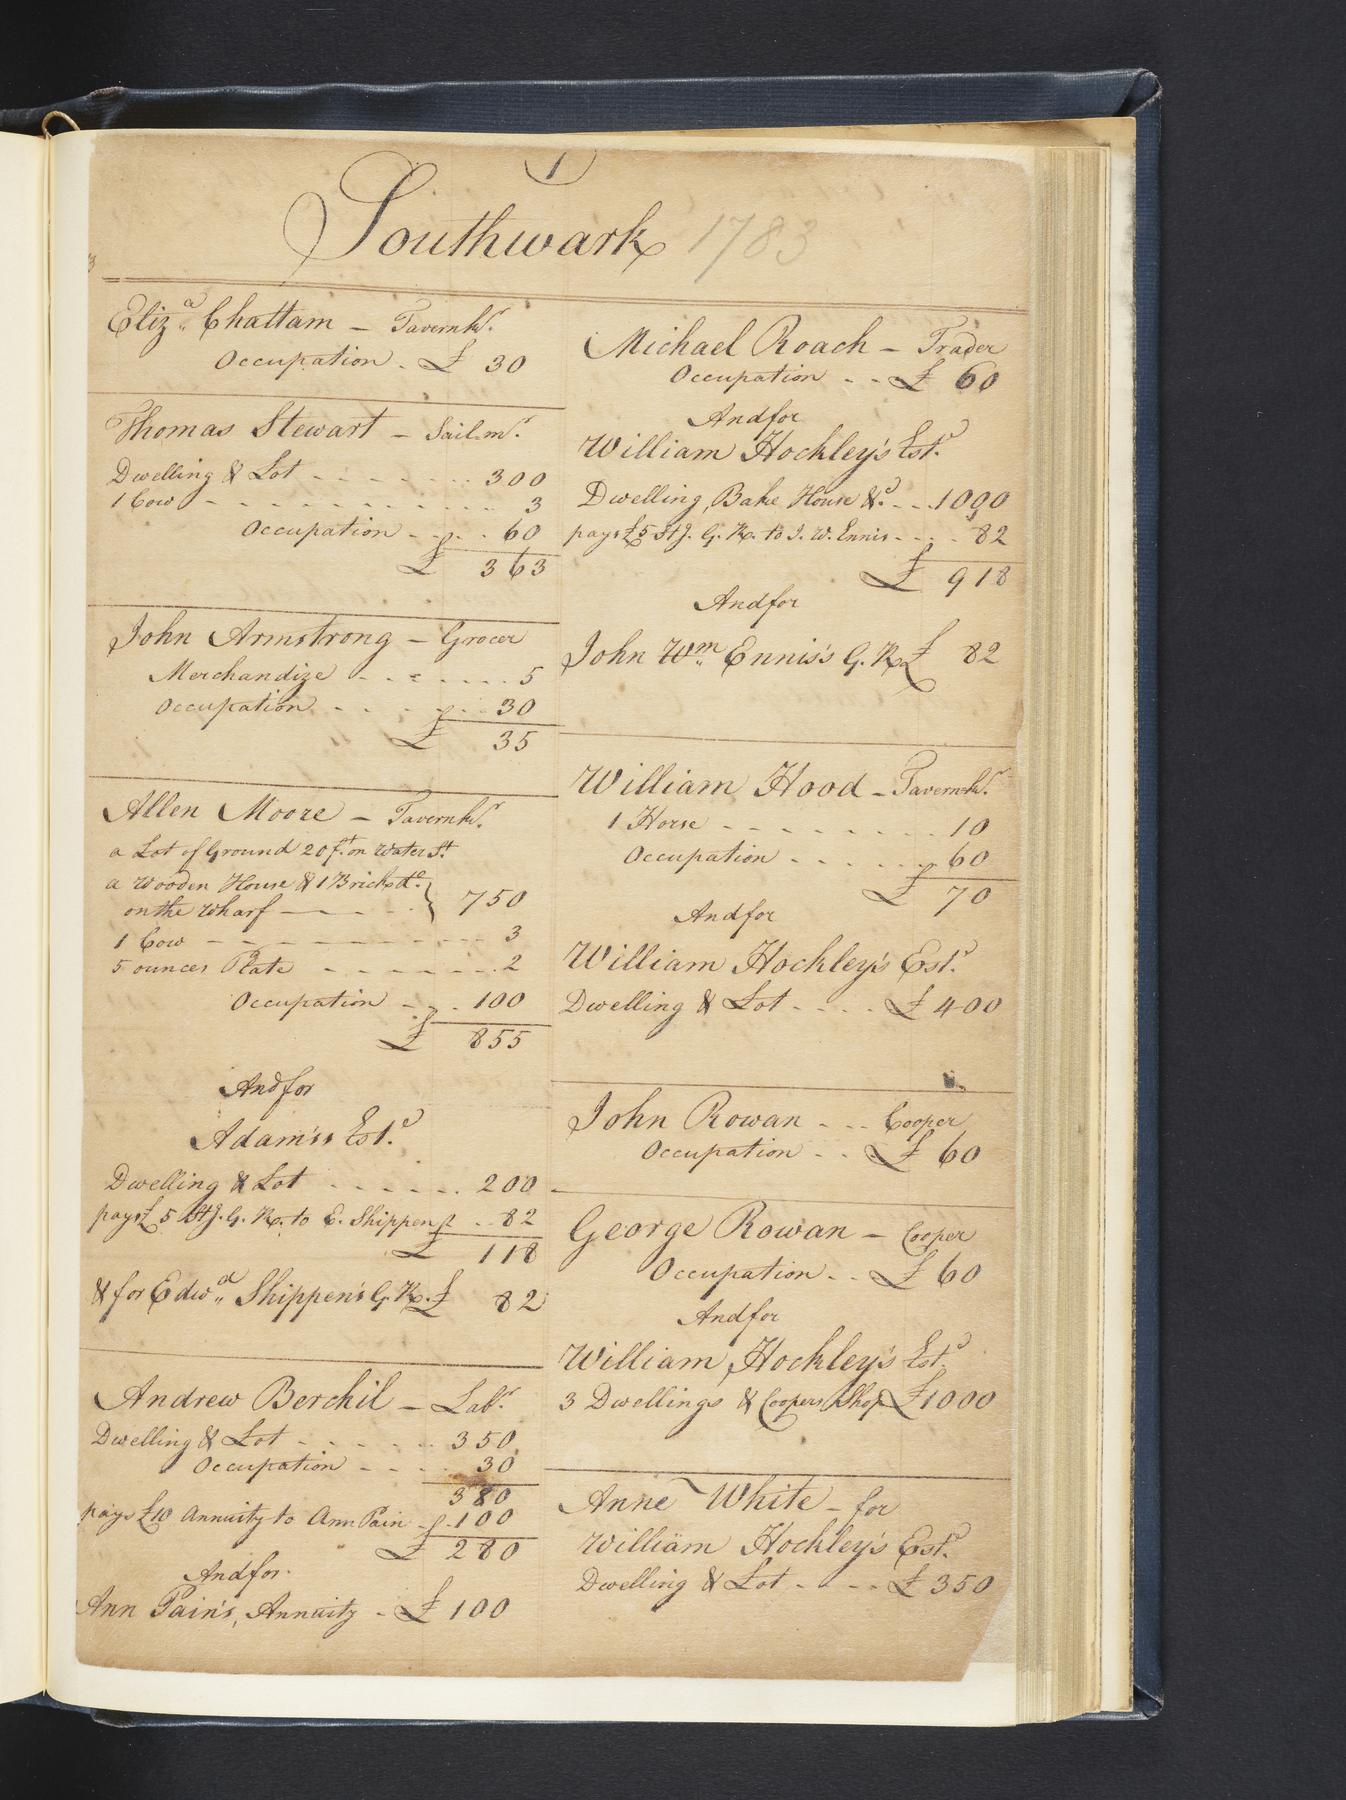 1
Southwark 1783
Eliz.a Chattam - Tavernk.r
Occupation - £ 30
Thomas Stewart - Sailm.r
Dwelling & Lot - - - - - - 300
1 Cow - - - - - - - - - - 3
Occupation - - - 60
£ 363
John Armstrong - Grocer
Merchandize - - - - - - - 5
Occupation - - - - - - 30
£ 35
Allen Moore - Tavernk.r
a Lot of Ground 20 f.t on Water S.t
a Wooden House & 1 Brick d.o
on the Wharf - - - - } 750
1 Cow - - - - - - - - - 3
5 ounces Plate - - - - - - - 2
Occupation - - - 100
£ 855
And for
Adam's Est.e
Dwelling & Lot - - - - - - 200
pays £5 Stg. G. R. to E. Shippen - - 82
£ 118
& for Edw.d Shippen's G. R. £ 82
Andrew Berchil - Lab.r
Dwelling & Lot - - - - - - 350
Occupation - - - - 30
380
pays £10 Annuity to Ann Pain - 100
£ 280
And for
Ann Pain's, Annuity - £ 100
Michael Roach - Trader
Occupation - - £ 60
And for
William Hockley's Est.e
Dwelling, Bake House &.c - - 1000
pays £5 Stg. G. R. to J. W. Ennis - - - - 82
£ 918
And for
John W.m Ennis's G. R. £ 82
William Hood - Tavernk.r
1 Horse - - - - - - - - 10
Occupation - - - - - - 60
£ 70
And for
William Hockley's Est.e
Dwelling & Lot - - - - £ 400
John Rowan - - - Cooper
Occupation - - £ 60
George Rowan - Cooper
Occupation - - £ 60
And for
William Hockley's Est.e
3 Dwellings & Coopers Shop £ 1000
Anne White - for
William Hockley's Est.e
Dwelling & Lot - - - - £ 350